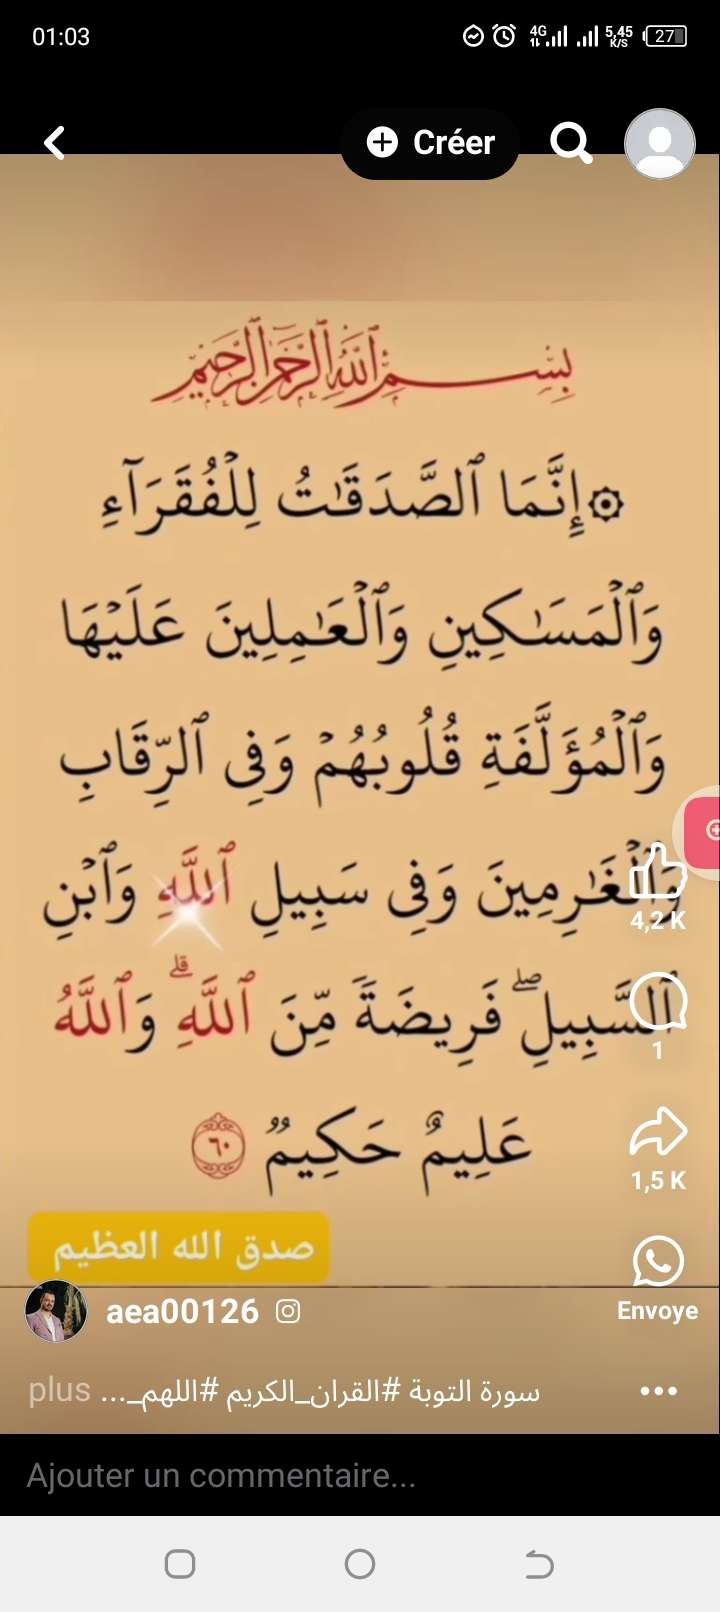 01:03
4G
5,45
K/S
27
Créer
بِسْمِ ٱللَّهِ ٱلرَّحْمَٰنِ ٱلرَّحِيمِ
۞إِنَّمَا ٱلصَّدَقَٰتُ لِلْفُقَرَآءِ
وَٱلْمَسَٰكِينِ وَٱلْعَٰمِلِينَ عَلَيْهَا
وَٱلْمُؤَلَّفَةِ قُلُوبُهُمْ وَفِى ٱلرِّقَابِ
وَٱلْغَٰرِمِينَ وَفِى سَبِيلِ ٱللَّهِ وَٱبْنِ
4,2 K
ٱلسَّبِيلِۖ فَرِيضَةً مِّنَ ٱللَّهِۗ وَٱللَّهُ
1
عَلِيمٌ حَكِيمٌ ٦٠
1,5 K
صدق الله العظيم
aea00126
Envoye
سورة التوبة #القران_الكريم #اللهم_... plus
Ajouter un commentaire...